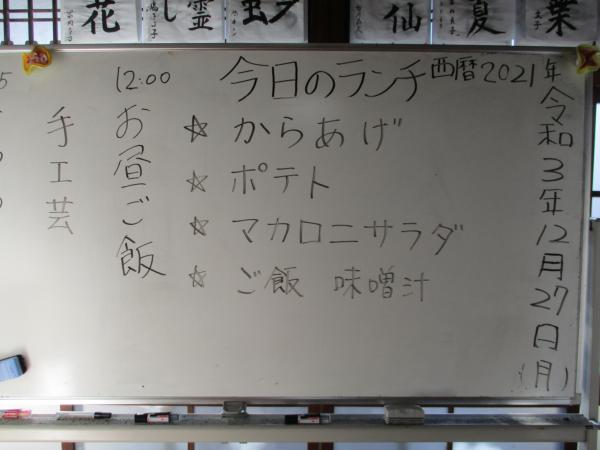 花
し
霊
虫
夕
仙
夏
葉
西暦2021年
令和3年12月27日(月)
今日のランチ
☆ からあげ
☆ ポテト
☆ マカロニサラダ
☆ ご飯 味噌汁
12:00
お昼ご飯
手工芸